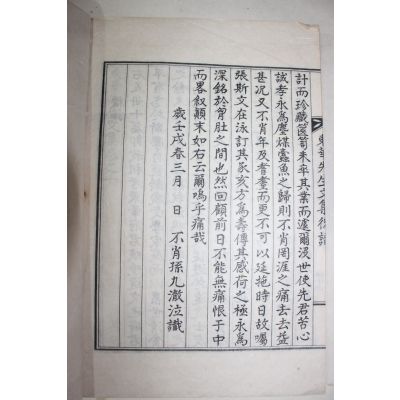 計而珍藏篋笥未卒其業而遽爾沒世使先君苦心
誠孝永爲塵煤蠧魚之歸則不肖罔涯之痛去去益
甚况又不肖年及耆耋而更不可以延拖時日故囑
張斯文在泳訂其豕亥方爲壽傳其感荷之極永爲
深銘於胷肚之間也然回顧前日不能無痛恨于中
而畧叙顚末如右云爾嗚乎痛哉
歲壬戌春三月 日 不肖孫九澈泣識
先生文集後識